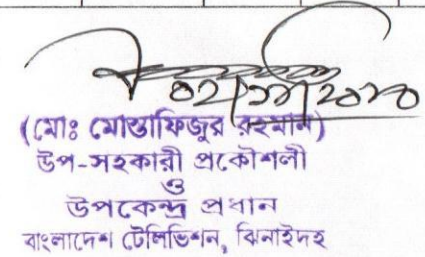 ০২/১১/২০২০
(মোঃ মোস্তাফিজুর রহমান)
উপ-সহকারী প্রকৌশলী
ও
উপকেন্দ্র প্রধান
বাংলাদেশ টেলিভিশন, ঝিনাইদহ